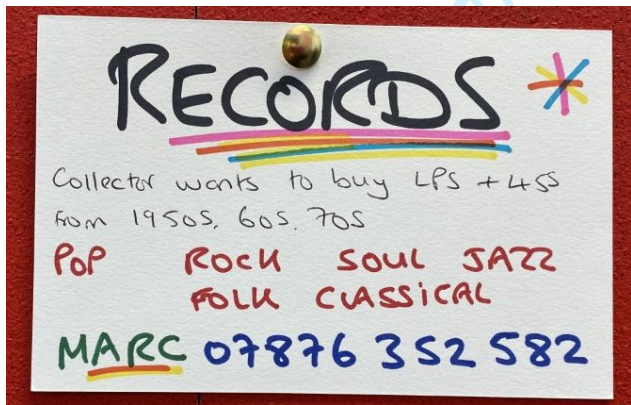 RECORDS
Collector wants to buy LPS + 45S
from 1950S, 60S, 70S
POP ROCK SOUL JAZZ
FOLK CLASSICAL
MARC 07876 352 582